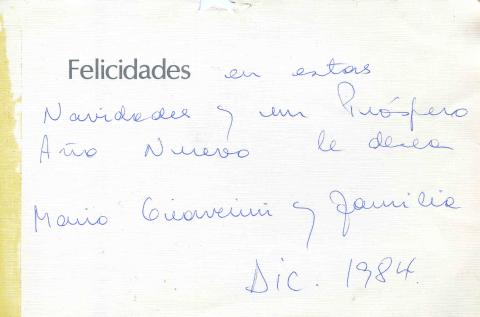 Felicidades en estas
Navidades y un Próspero
Año Nuevo le desea
Mario y familia
Dic. 1984.